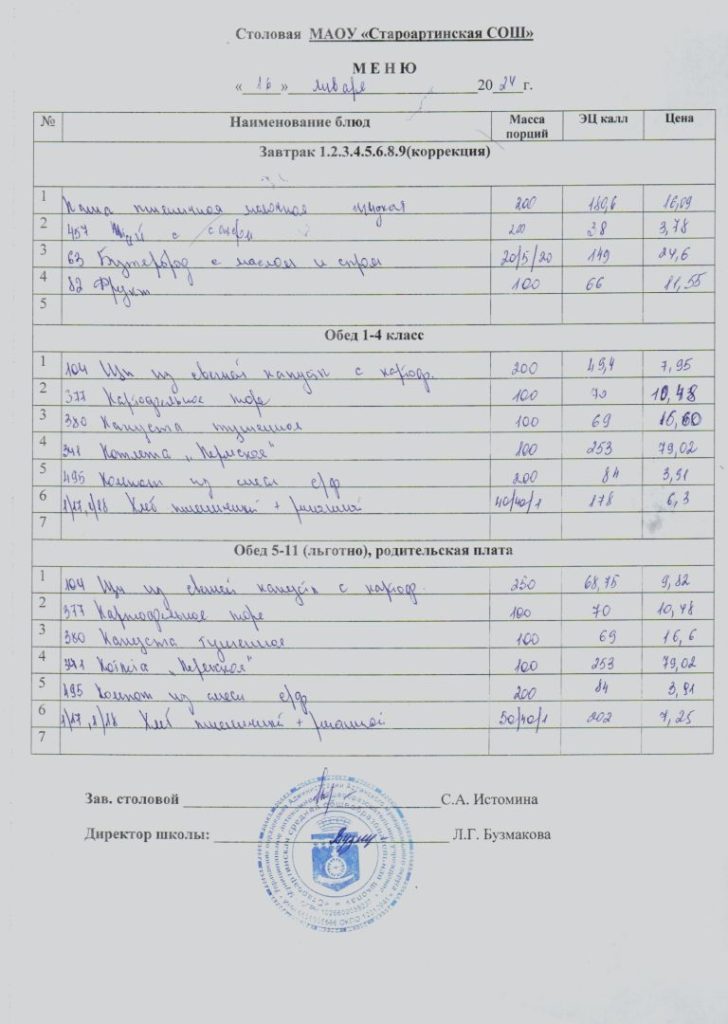 Столовая МАОУ «Староартинская СОШ»
М Е Н Ю
« 16 » января 20 24 г.
№ Наименование блюд Масса порций ЭЦ калл Цена
Завтрак 1.2.3.4.5.6.8.9(коррекция)
1 Каша пшеничная молочная жидкая 200 180,6 16,09
2 457 Чай с сахаром 200 38 3,78
3 63 Бутерброд с маслом и сыром 20/5/20 149 24,6
4 82 Фрукт 100 66 11,55
5
Обед 1-4 класс
1 104 Щи из свежей капусты с картоф. 200 49,4 7,95
2 377 Картофельное пюре 100 70 10,48
3 380 Капуста тушеная 100 69 16,60
4 341 Котлета „Пермская" 100 253 79,02
5 495 Компот из смеси с/ф 200 84 3,91
6 1/17,1/18 Хлеб пшеничный + ржаной 40/40/1 178 6,3
7
Обед 5-11 (льготно), родительская плата
1 104 Щи из свежей капусты с картоф. 250 68,75 9,82
2 377 Картофельное пюре 100 70 10,48
3 380 Капуста тушеная 100 69 16,6
4 341 Котлета „Пермская" 100 253 79,02
5 495 Компот из смеси с/ф 200 84 3,91
6 1/17,1/18 Хлеб пшеничный + ржаной 50/40/1 202 7,25
7
Зав. столовой С.А. Истомина
Директор школы: Л.Г. Бузмакова